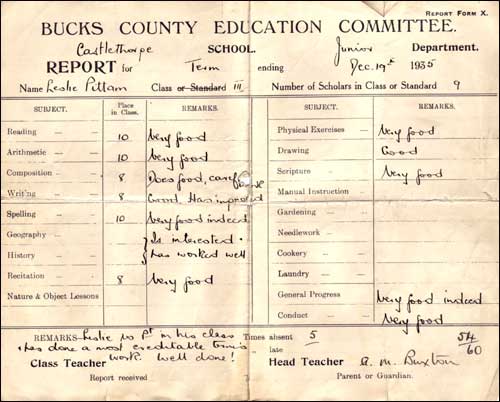 REPORT FORM X.
BUCKS COUNTY EDUCATION COMMITTEE.
Castlethorpe SCHOOL. Junior Department.
REPORT for Term ending Dec. 19th 1935
Name Leslie Pittam Class or Standard III Number of Scholars in Class or Standard 9
SUBJECT. Place in Class. REMARKS. SUBJECT. REMARKS.
Reading 10 Very good Physical Exercises Very good
Arithmetic 10 Very good Drawing Good
Composition 8 Does good, careful work Scripture Very good
Writing 8 Good. Has improved Manual Instruction
Spelling 10 Very good indeed Gardening
Geography } Is interested & Needlework
History } has worked well Cookery
Recitation 8 Very good Laundry
Nature & Object Lessons General Progress Very good indeed
Conduct Very good
REMARKS Leslie is 1st in his class Times absent 5 54/60
& has done a most creditable term's late
Class Teacher work. Well done! Head Teacher A. M. Buxton
Report received Parent or Guardian.